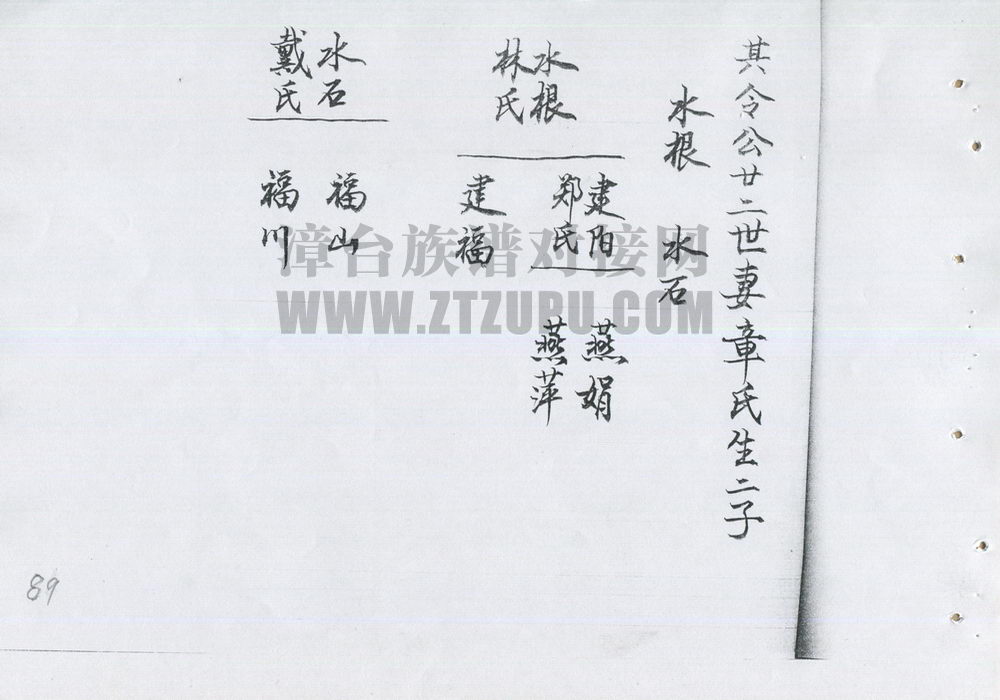 其令公廿二世妻章氏生二子
水根 水石
水根
林氏
建阳
郑氏
燕娟
燕萍
建福
水石
戴氏
福山
福川
漳台族谱对接网
WWW.ZTZUPU.COM
89